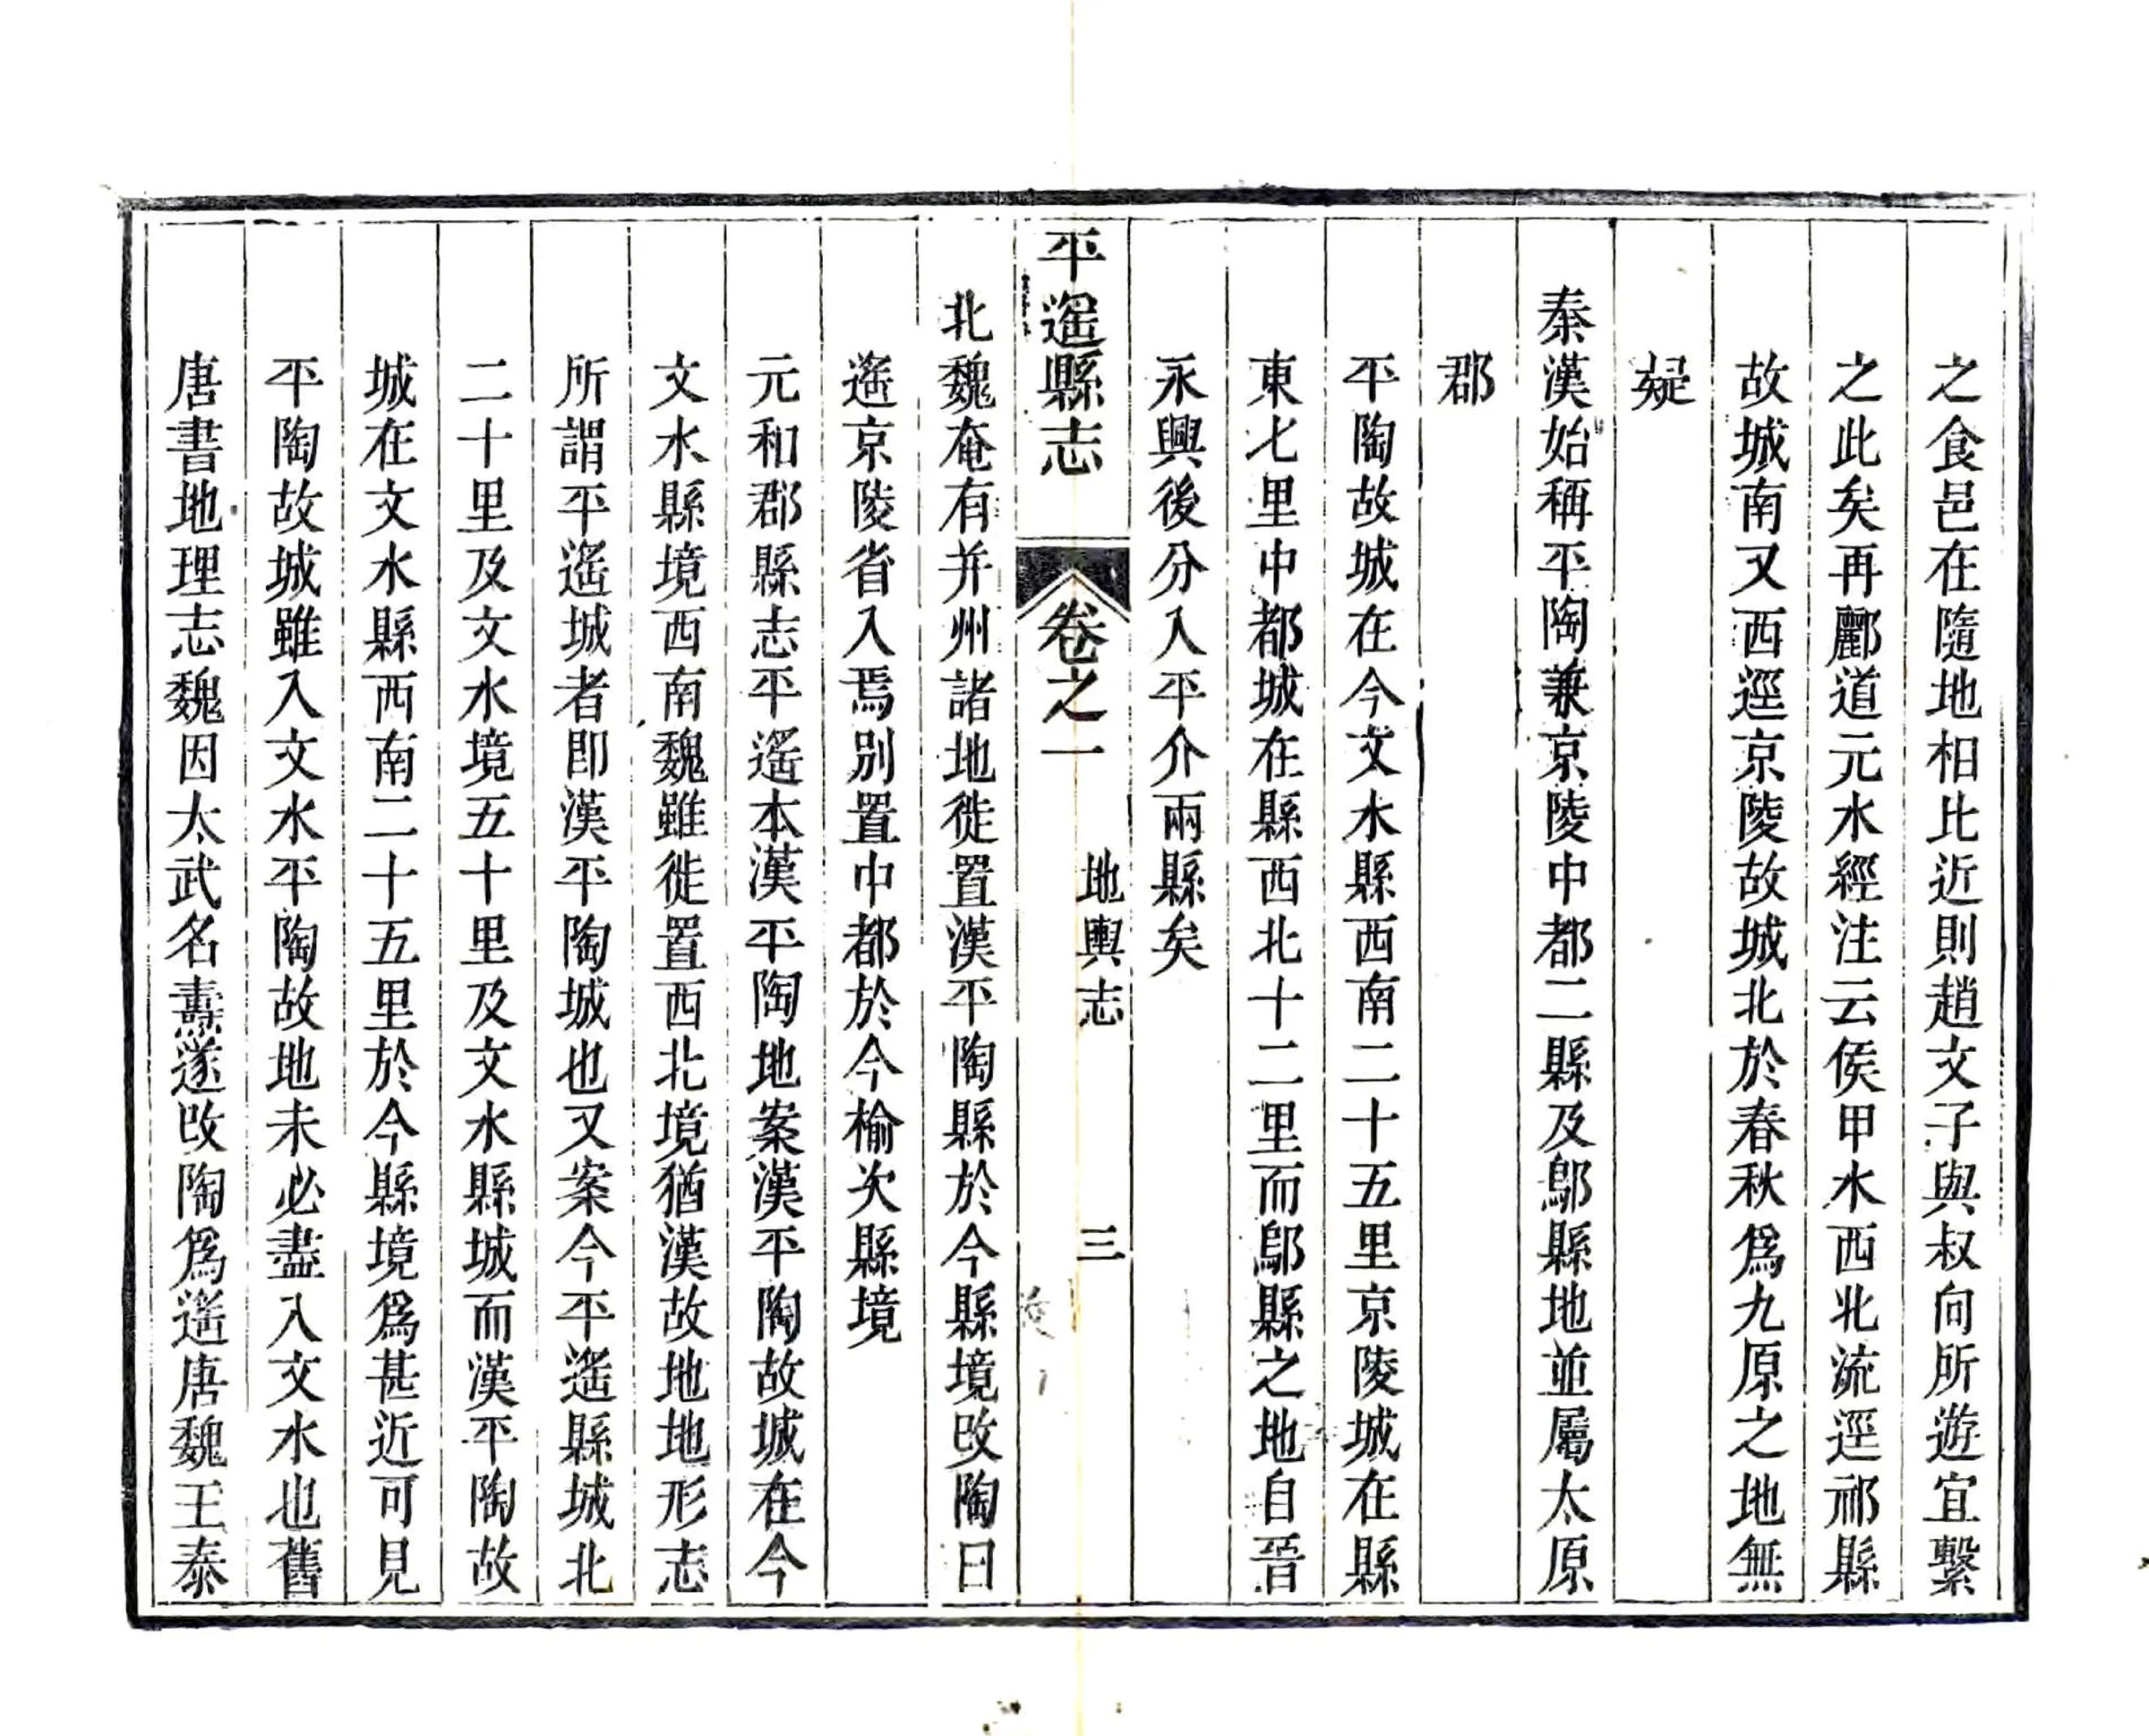 之食邑在隨地相比近則趙文子與叔向所遊宜繫
之此矣再酈道元水經注云侯甲水西北流逕祁縣
故城南又西逕京陵故城北於春秋爲九原之地無
疑
秦漢始稱平陶兼京陵中都二縣及鄔縣地並屬太原
郡
平陶故城在今文水縣西南二十五里京陵城在縣
東七里中都城在縣西北十二里而鄔縣之地自晉
永興後分入平介兩縣矣
平遙縣志
卷之一
地輿志
三
北魏奄有并州諸地徙置漢平陶縣於今縣境改陶曰
遙京陵省入焉別置中都於今榆次縣境
元和郡縣志平遙本漢平陶地案漢平陶故城在今
文水縣境西南魏雖徙置西北境猶漢故地地形志
所謂平遙城者卽漢平陶城也又案今平遙縣城北
二十里及文水境五十里及文水縣城而漢平陶故
城在文水縣西南二十五里於今縣境爲甚近可見
平陶故城雖入文水平陶故地未必盡入文水也舊
唐書地理志魏因太武名燾遂改陶爲遙唐魏王泰